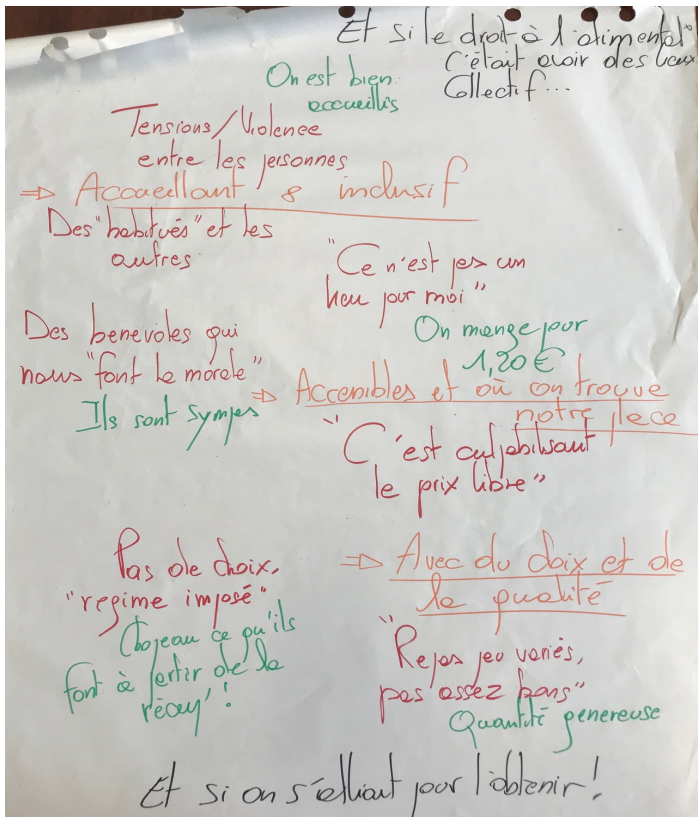 Et si le droit à l'alimentat°
c'était avoir des lieux
Collectif...
On est bien
accueillis
Tensions/Violence
entre les personnes
⇒ Accueillant & inclusif
Des "habitués" et les
autres
"Ce n'est pas un
lieu pour moi"
Des benevoles qui
nous "font la morale"
Ils sont sympas
On mange pour
1,20€
⇒ Accessibles et où on trouve
notre place
"C'est culpabilisant
le prix libre"
Pas de choix,
"regime imposé"
Chapeau ce qu'ils
font à partir de la
récup'!
⇒ Avec du choix et de
la qualité
"Repas peu variés,
pas assez bons"
Quantité genereuse
Et si on s'alliait pour l'obtenir!